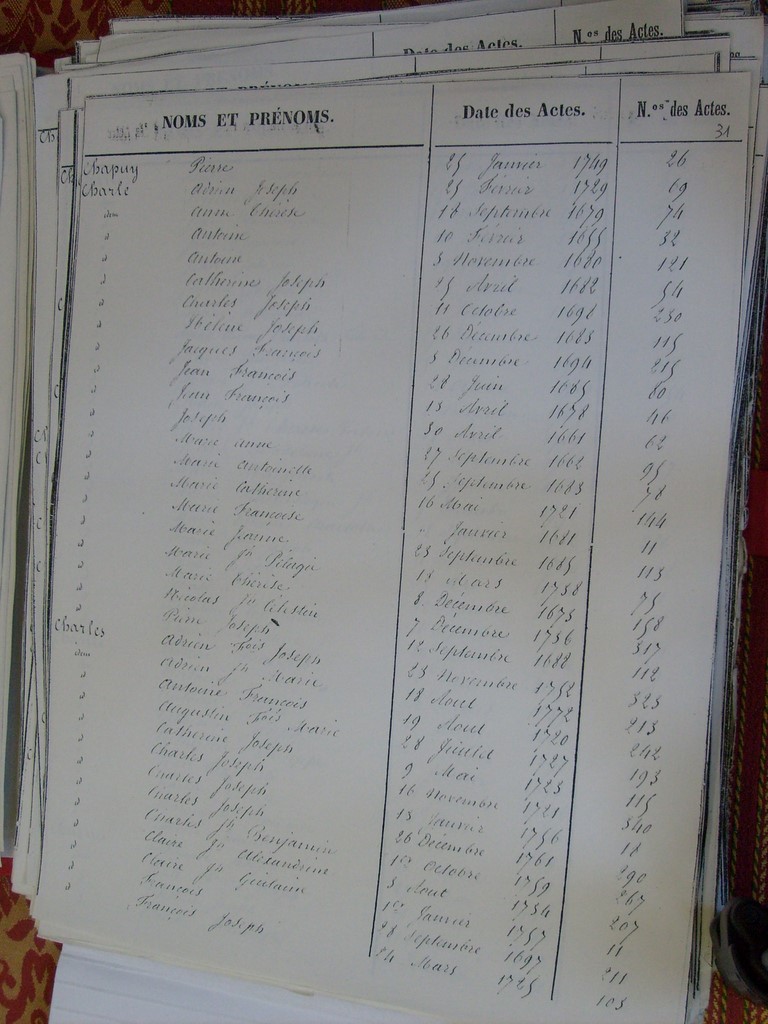 Date des Actes. N.os des Actes.
NOMS ET PRÉNOMS. Date des Actes. N.os des Actes.
31
Chapuy Pierre 25 Janvier 1749 26
Charle Adrien Joseph 25 Février 1729 69
idem Anne Thérèse 18 Septembre 1679 74
" Antoine 10 Février 1655 32
" Antoine 3 Novembre 1680 121
" Catherine Joseph 25 Avril 1682 54
" Charles Joseph 11 Octobre 1698 230
" Hélène Joseph 26 Décembre 1683 115
" Jacques François 3 Décembre 1694 215
" Jean François 28 Juin 1665 80
" Jean François 13 Avril 1678 46
" Joseph 30 Avril 1661 62
" Marie Anne 27 Septembre 1662 95
" Marie Antoinette 25 Septembre 1683 78
" Marie Catherine 16 Mai 1721 144
" Marie Françoise " Janvier 1681 11
" Marie Jeanne 23 Septembre 1685 113
" Marie Jh Pélagie 13 Mars 1738 75
" Marie Thérèse 8 Décembre 1673 158
" Nicolas Jh Célestin 7 Décembre 1736 317
" Pierre Joseph 12 Septembre 1688 112
Charles Adrien Fois Joseph 23 Novembre 1752 323
idem Adrien Jh Marie 18 Aout 1772 213
" Antoine François 19 Aout 1720 242
" Augustin Fois Marie 28 Juillet 1727 193
" Catherine Joseph 9 Mai 1723 115
" Charles Joseph 16 Novembre 1721 340
" Charles Joseph 13 Janvier 1756 18
" Charles Joseph 26 Décembre 1761 290
" Charles Jh Benjamin 1er Octobre 1759 267
" Claire Jh Alexandrine 3 Aout 1754 207
" Claire Jh Guilaine 1er Janvier 1757 11
" François 28 Septembre 1697 211
" François Joseph 24 Mars 1725 103